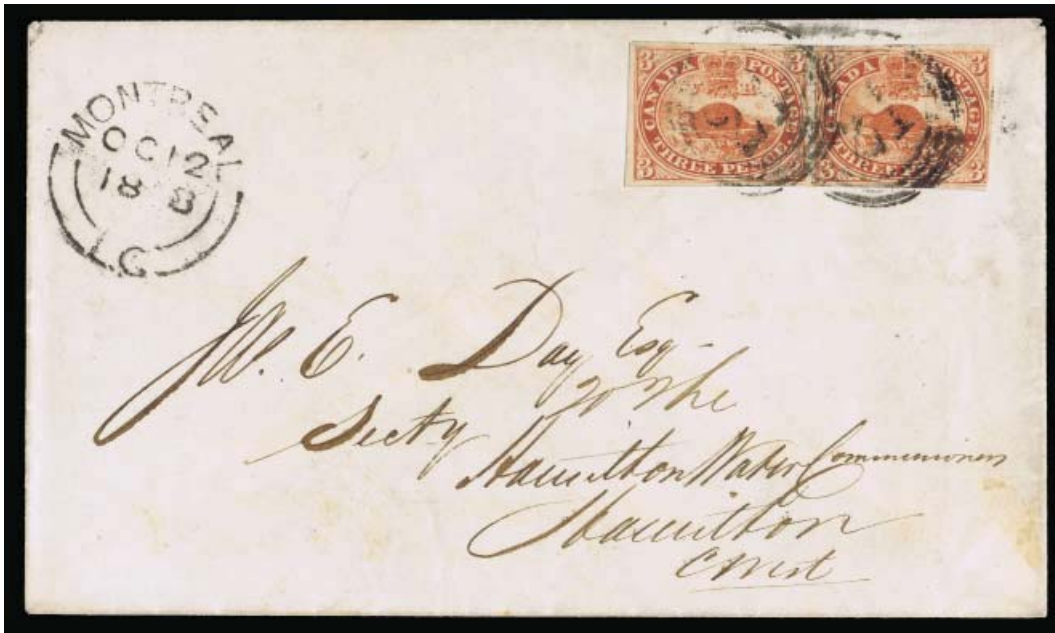 MONTREAL
OC 12
18 B
L C
3 3
CANADA POSTAGE
THREE PENCE
3
3 3
CANADA POSTAGE
THREE
3 3
W. E. Day Esq
Secty to the
Hamilton Water Commissioners
Hamilton
C West